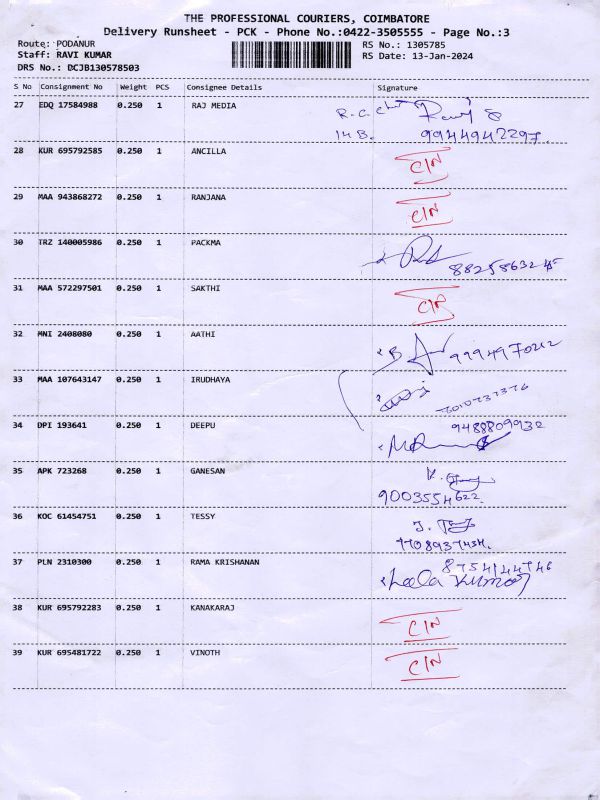 THE PROFESSIONAL COURIERS, COIMBATORE
Delivery Runsheet - PCK - Phone No.:0422-3505555 - Page No.:3
Route: PODANUR RS No.: 1305785
Staff: RAVI KUMAR RS Date: 13-Jan-2024
DRS No.: DCJB130578503
S No Consignment No Weight PCS Consignee Details Signature
27 EDQ 17584988 0.250 1 RAJ MEDIA
9944942297.
28 KUR 695792585 0.250 1 ANCILLA C/N
29 MAA 943868272 0.250 1 RANJANA C/N
30 TRZ 140005986 0.250 1 PACKMA
31 MAA 572297501 0.250 1 SAKTHI
32 MNI 2408080 0.250 1 AATHI
33 MAA 107643147 0.250 1 IRUDHAYA
34 DPI 193641 0.250 1 DEEPU 9488809932
35 APK 723268 0.250 1 GANESAN
9003554622
36 KOC 61454751 0.250 1 TESSY
37 PLN 2310300 0.250 1 RAMA KRISHANAN 8754144746
Leela Kumar
38 KUR 695792283 0.250 1 KANAKARAJ C/N
39 KUR 695481722 0.250 1 VINOTH C/N